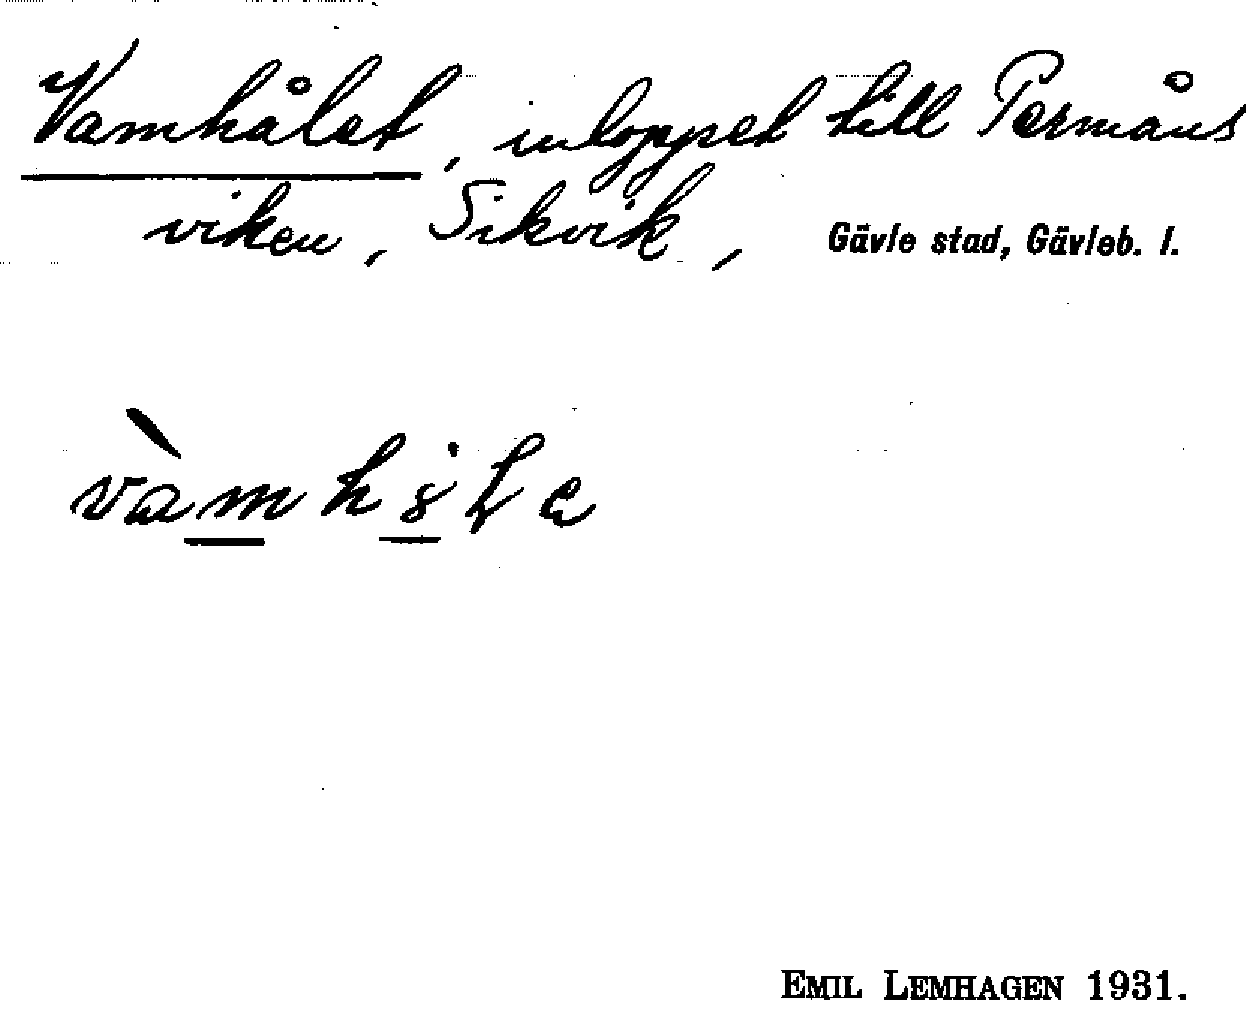 Vamhålet, inloppet till Permåns
viken, Sikvik, Gävle stad, Gävleb. l.
EMIL LEMHAGEN 1931.